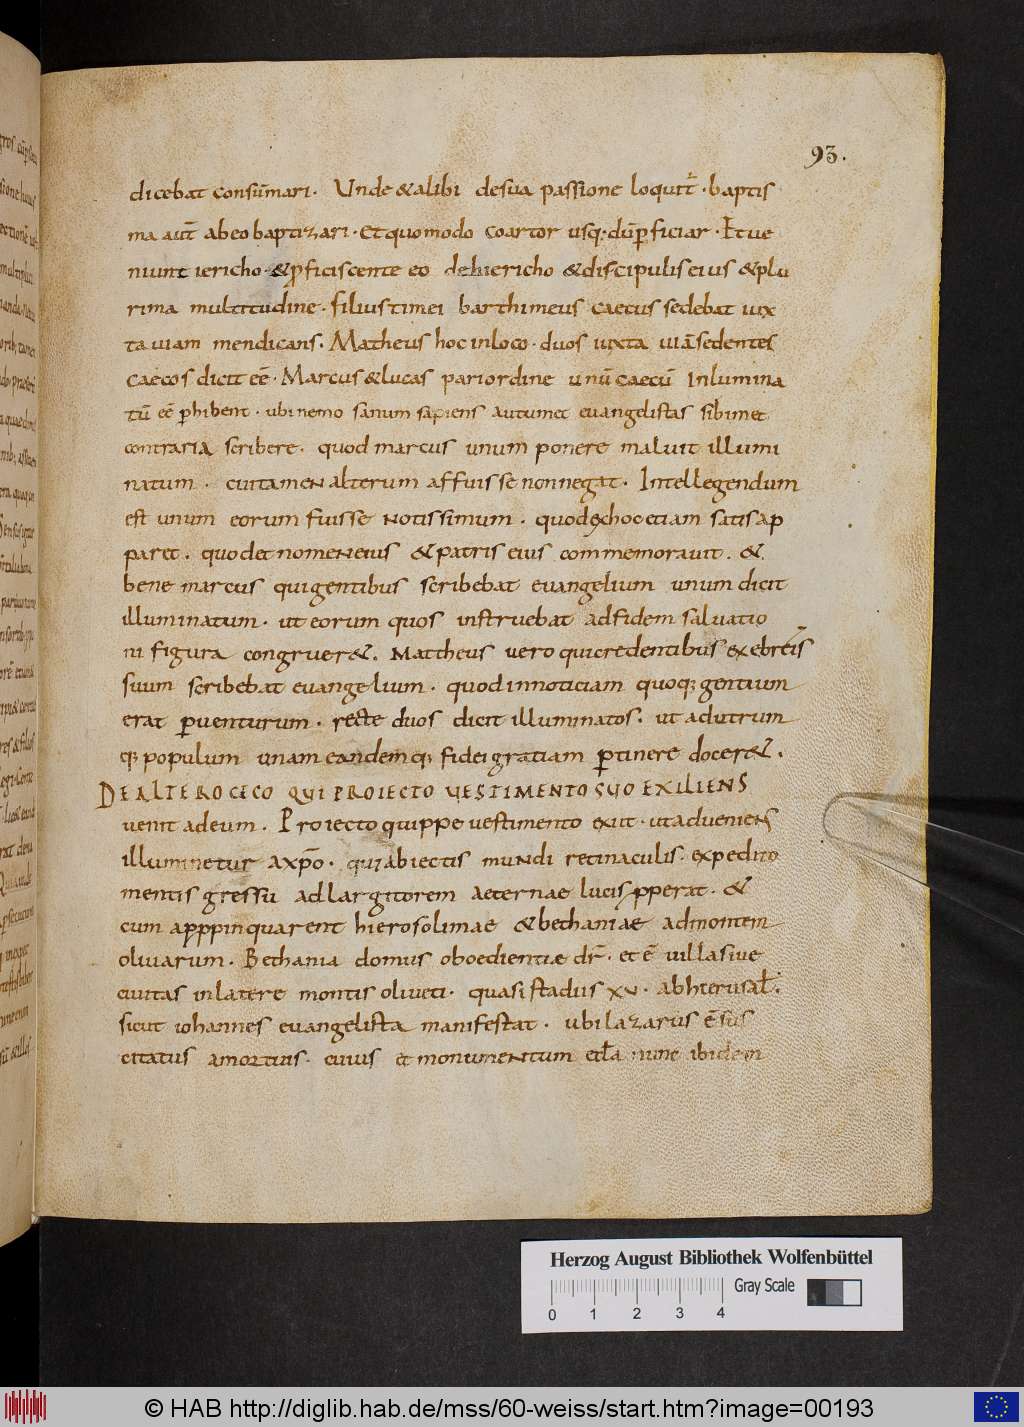 93.
dicebat consūmari. Unde & alibi de sua passione loquit̄. baptis
ma aut̄ abeo baptizari. Et quomodo coartor usq; dū ꝑficiar. Et ue
niunt iericho. & ꝓficiscente eo de hiericho & discipulis eius & plu
rima multitudine. filius timei barthimeus caecus sedebat iux
ta uiam mendicans. Matheus hoc inloco. duos iuxta uiā sedentes
caecos dicit eē. Marcus & lucas pari ordine unū caecū Inlumina
tū eē ꝑhibent. ubi nemo sanum sapiens autumet euangelistas sibimet
contraria scribere. quod marcus unum ponere maluit illumi
natum. cui tamen alterum affuisse non negat. Intellegendum
est unum eorum fuisse notissimum. quod ex hoc etiam satis ap
paret. quod et nomen eius & patris eius commemorauit. &
bene marcus qui gentibus scribebat euangelium unum dicit
illuminatum. ut eorum quos instruebat ad fidem saluatio
ni figura congruer&. Mattheus uero qui credentibus ex ebreis
suum scribebat euangelium. quod in noticiam quoq; gentium
erat ꝑuenturum. recte duos dicit illuminatos. ut ad utrum
q; populum unam eandemq; fidei gratiam ꝑtinere docer&.
DE ALTERO CECO QUI PROIECTO VESTIMENTO SUO EXILIENS
uenit ad eum. Proiecto quippe uestimento exit. ut adueniens
illuminetur a xp̄o. qui abiectis mundi retinaculis. expedito
mentis gressu ad largitorem aeternae lucis ꝓperat. &
cum apꝓpinquarent hierosolimae & bethaniae ad montem
oliuarum. Bethania domus oboedientiæ dr̄. et ē uilla siue
ciuitas in latere montis oliueti. quasi stadiis xv. ab hierusal̄.
sicut iohannes euangelista manifestat. ubi lazarus ē sus
citatus a mortuis. cuius et monumentum eccl̄a nunc ibidem
Herzog August Bibliothek Wolfenbüttel
0 1 2 3 4 Gray Scale
© HAB http://diglib.hab.de/mss/60-weiss/start.htm?image=00193